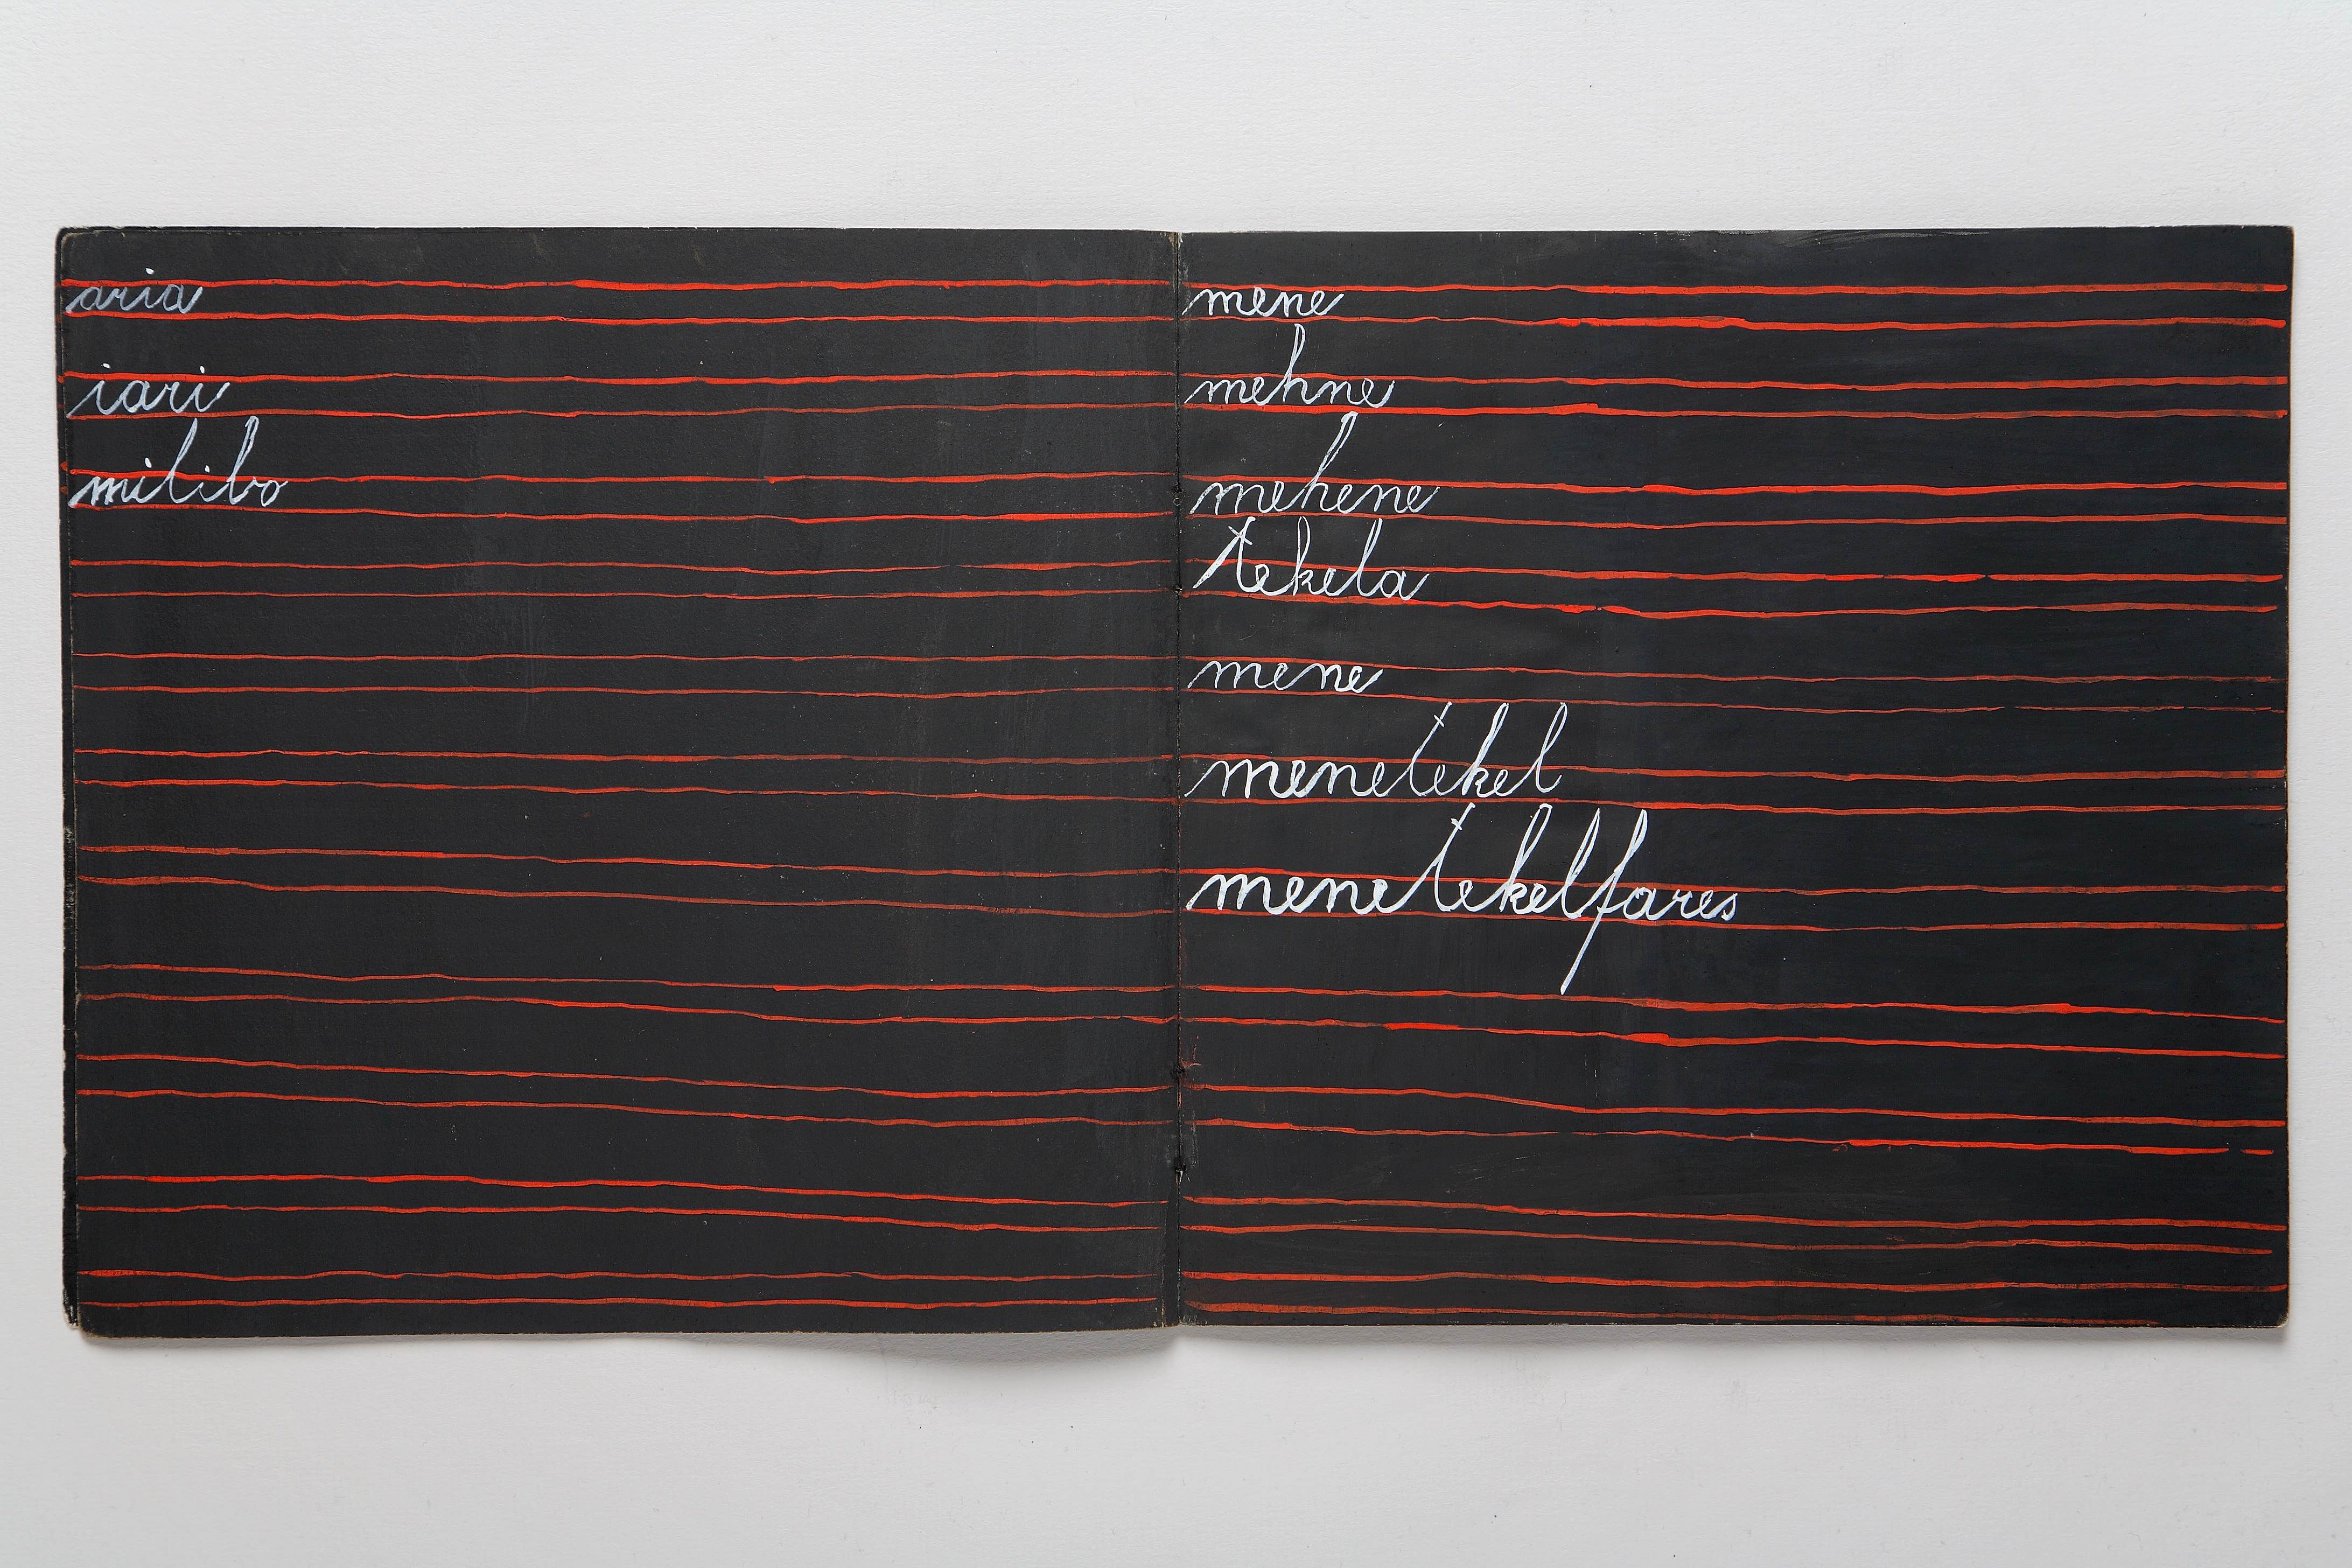 aria
iari
milibo
mene
mehne
mehene
tekela
mene
menetekel
menetekelfares